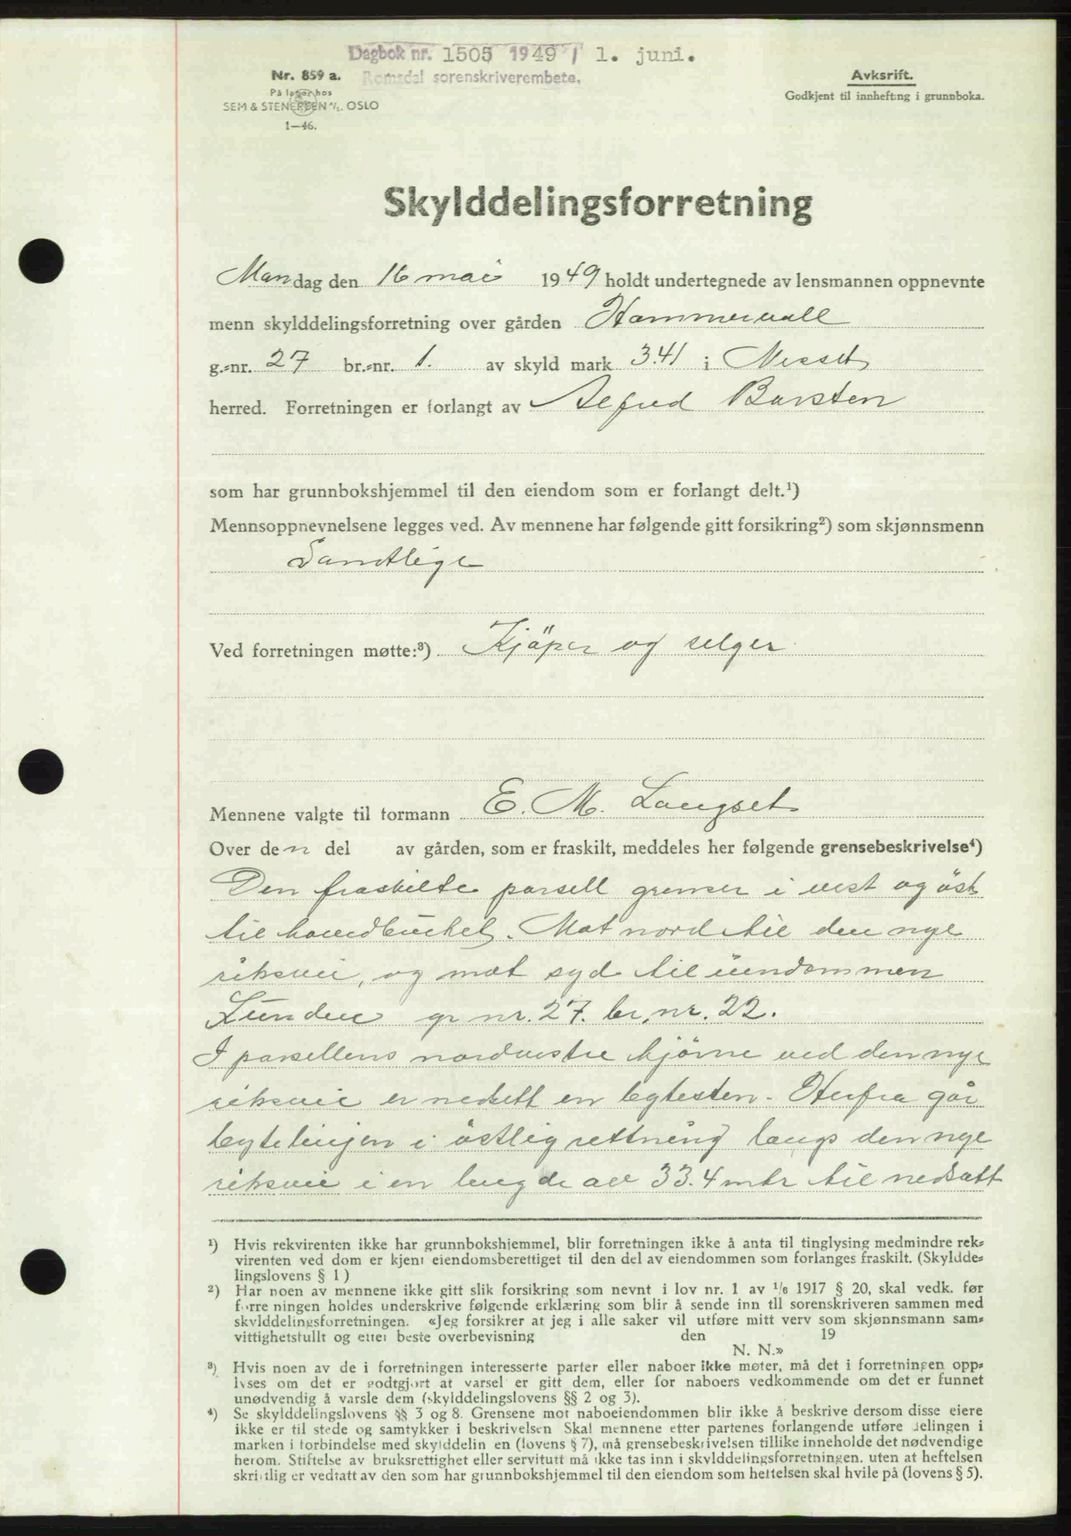 Dagbok nr. 1505 1949 / 1. juni.
Romsdal sorenskriverembete.
Nr. 859 a.
På lager hos
SEM & STENERSEN A/S. OSLO
1—46.
Avskrift.
Godkjent til innhefting i grunnboka.
Skylddelingsforretning
Mandag den 16 mai 1949 holdt undertegnede av lensmannen oppnevnte
menn skylddelingsforretning over gården Hammervoll
g.-nr. 27 br.-nr. 1. av skyld mark 3.41 i Nesset
herred. Forretningen er forlangt av Alfred Barsten
som har grunnbokshjemmel til den eiendom som er forlangt delt.¹)
Mennsoppnevnelsene legges ved. Av mennene har følgende gitt forsikring²) som skjønnsmenn
Samtlige
Ved forretningen møtte:³) Kjöper og selger
Mennene valgte til formann E. M. Langset
Over den del av gården, som er fraskilt, meddeles her følgende grensebeskrivelse⁴)
Den fraskilte parsell grenser i vest og öst
til hovedbruket. Mot nord til den nye
riksvei, og mot syd til eiendommen
Lunden gr nr. 27. br. nr. 22.
I parsellens nordvestre hjörne ved den nye
riksvei er nedsett en bytesten. Herfra går
bytelinjen i östlig rettning langs den nye
riksvei i en lengde av 33.4 mtr til nedsatt
¹) Hvis rekvirenten ikke har grunnbokshjemmel, blir forretningen ikke å anta til tinglysing medmindre rek-
virenten ved dom er kjent eiendomsberettiget til den del av eiendommen som forlanges fraskilt. (Skyldde-
lingslovens § 1)
²) Har noen av mennene ikke gitt slik forsikring som nevnt i lov nr. 1 av 1/6 1917 § 20, skal vedk. før
forretningen holdes underskrive følgende erklæring som blir å sende inn til sorenskriveren sammen med
skylddelingsforretningen. «Jeg forsikrer at jeg i alle saker vil utføre mitt verv som skjønnsmann sam-
vittighetsfullt og etter beste overbevisning den 19
N. N.»
³) Hvis noen av de i forretningen interesserte parter eller naboer ikke møter, må det i forretningen opp-
lyses om det er godtgjort at varsel er gitt dem, eller for naboers vedkommende om det er funnet
unødvendig å varsle dem (skylddelingslovens §§ 2 og 3).
⁴) Se skylddelingslovens §§ 3 og 8. Grensene mot naboeiendommen blir ikke å beskrive dersom disse eiere
ikke er til stede og samtykker i beskrivelsen Skal mennene etter partenes forlangende utføre delingen i
marken i forbindelse med skylddelingen (lovens § 7), må grensebeskrivelsen tillike inneholde det nødvendige
herom. Stiftelse av bruksrettighet eller servitutt må ikke tas inn i skylddelingsforretningen. uten at heftelsen
skriftlig er vedtatt av den som har grunnbokshjemmel til den eiendom som heftelsen skal hvile på (lovens § 5).